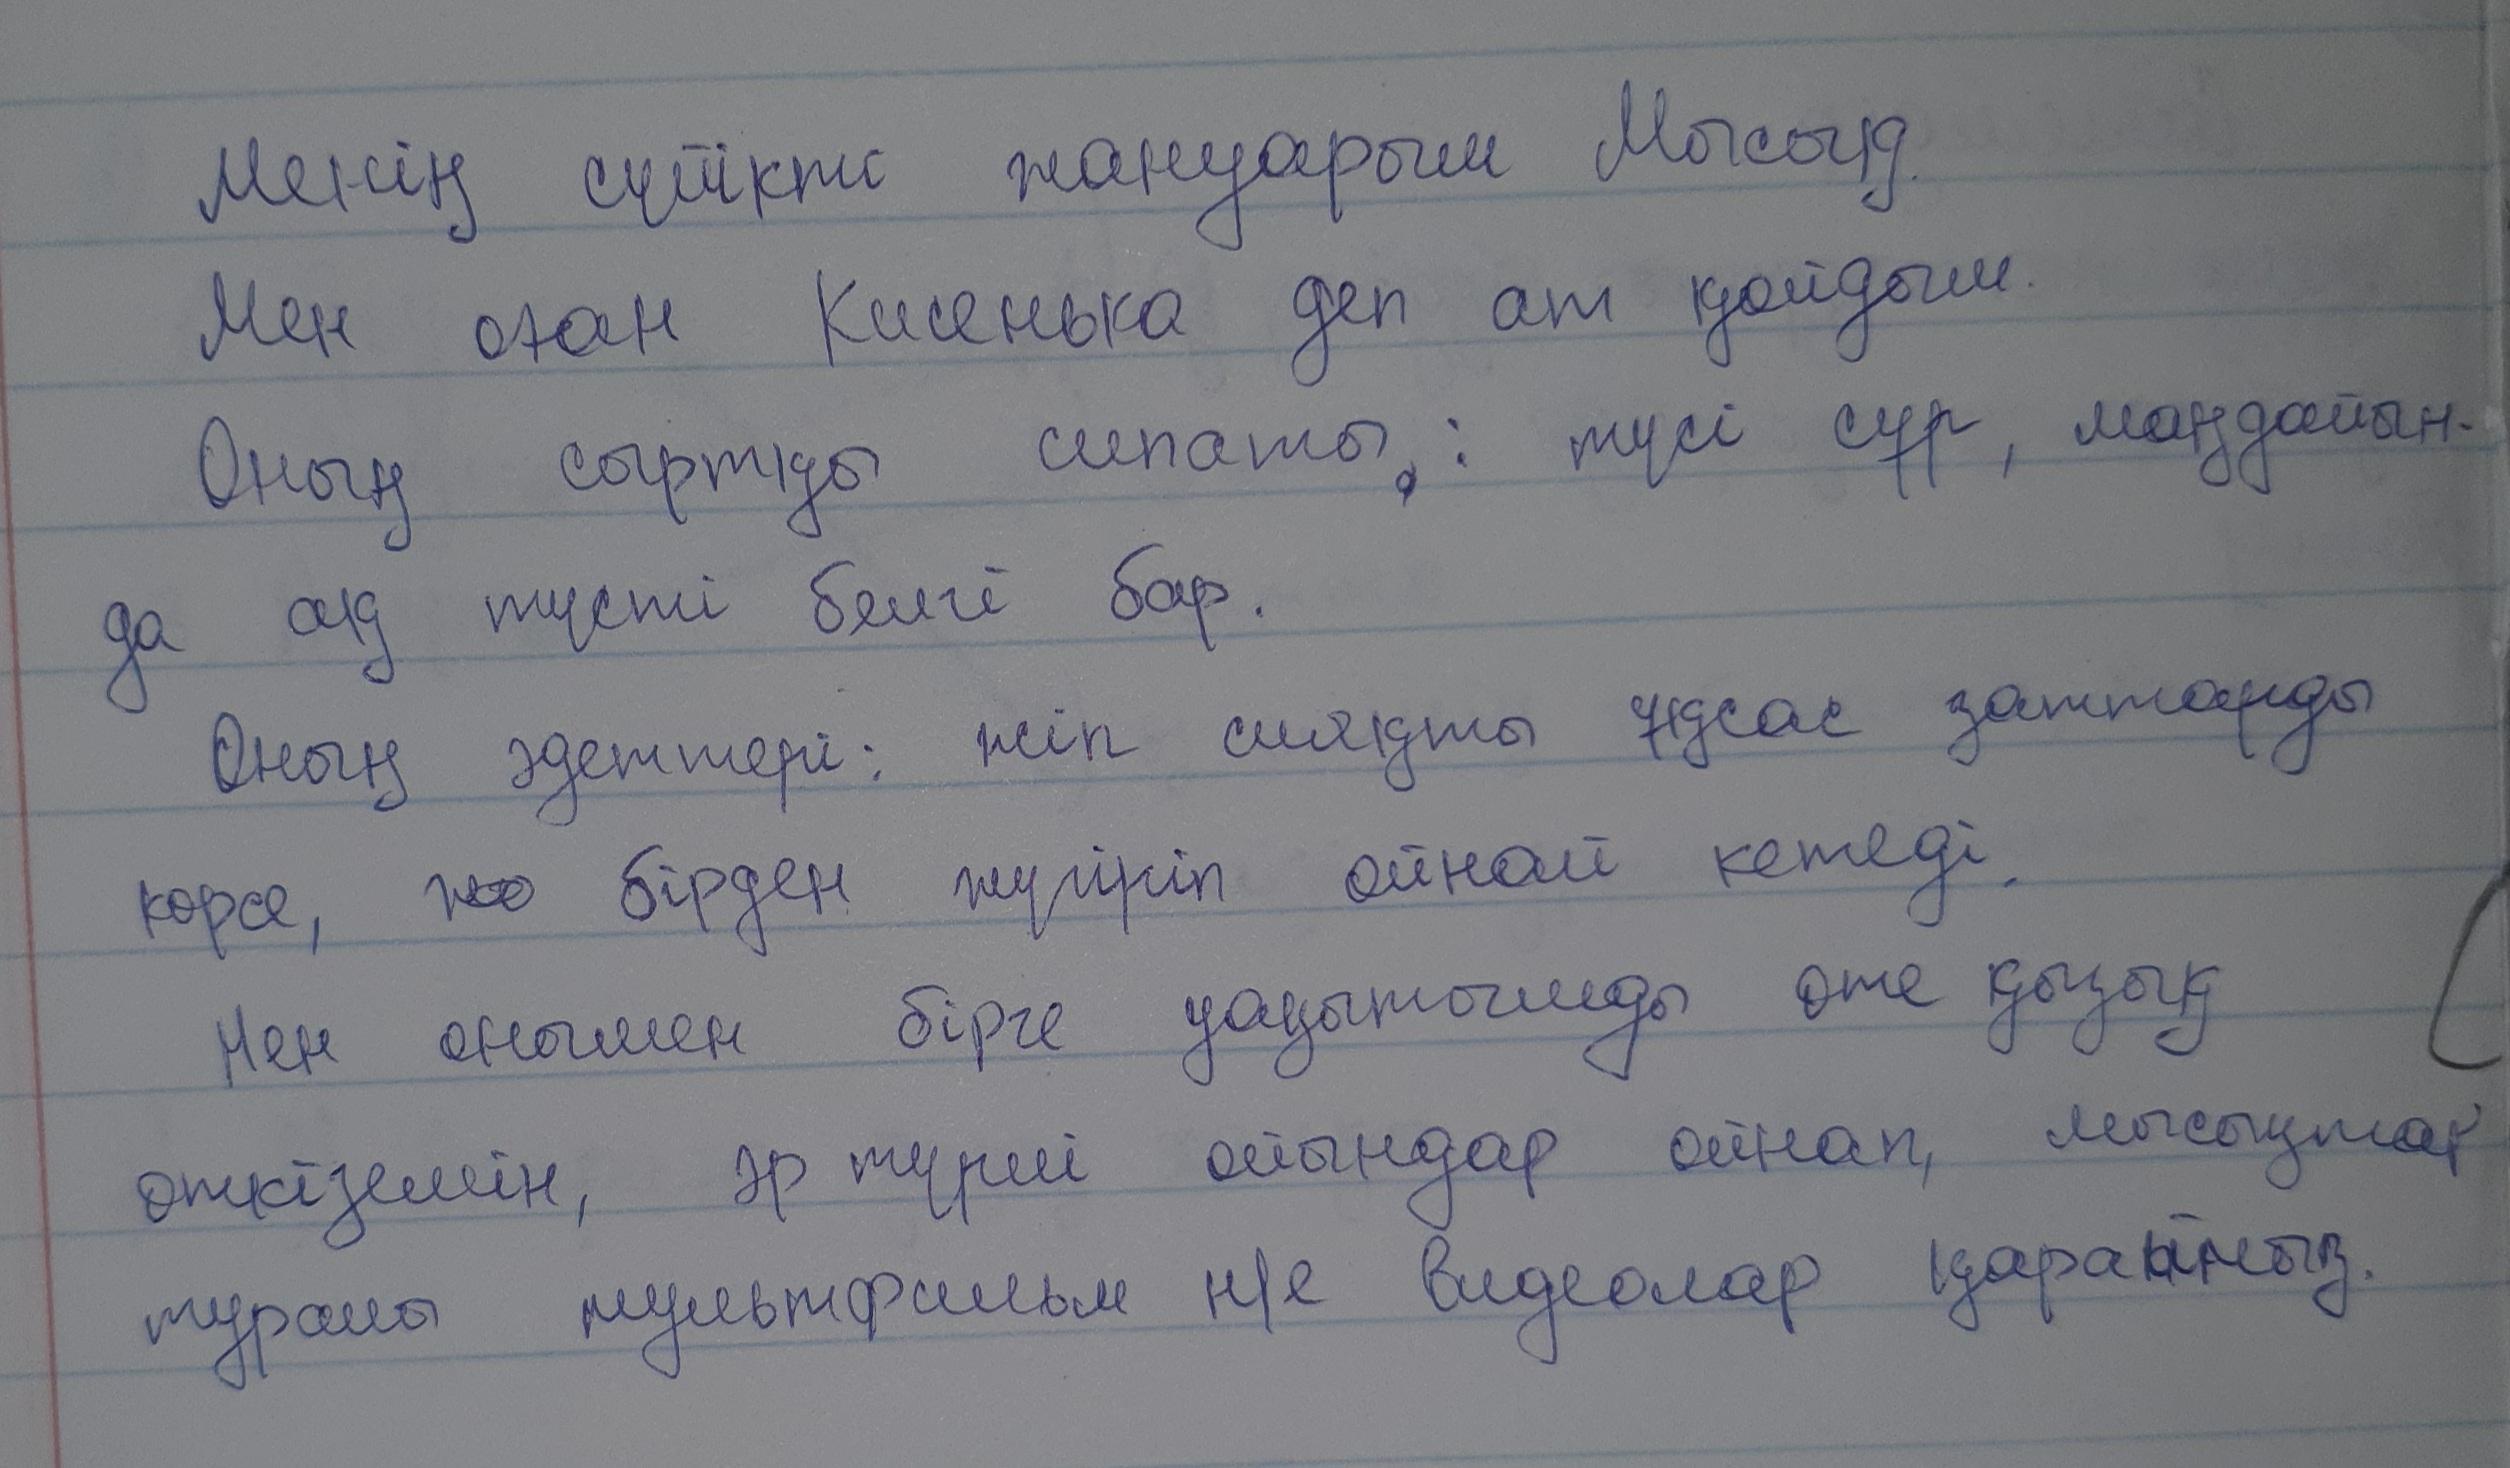 Менің сүйікті жануарым Мысық.
Мен оған Кисенька деп ат қойдым.
Оның сыртқы сипаты,: түсі сұр, маңдайын-
да ақ түсті белгі бар.
Оның әдеттері: жіп сияқты ұқсас заттарды
көрсе, бірден жүгіріп ойнай кетеді.
Мен онымен бірге уақытымды өте қызық
өткіземін, әр түрлі ойындар ойнап, мысықтар
туралы мультфильм н/е видеолар қараймыз.